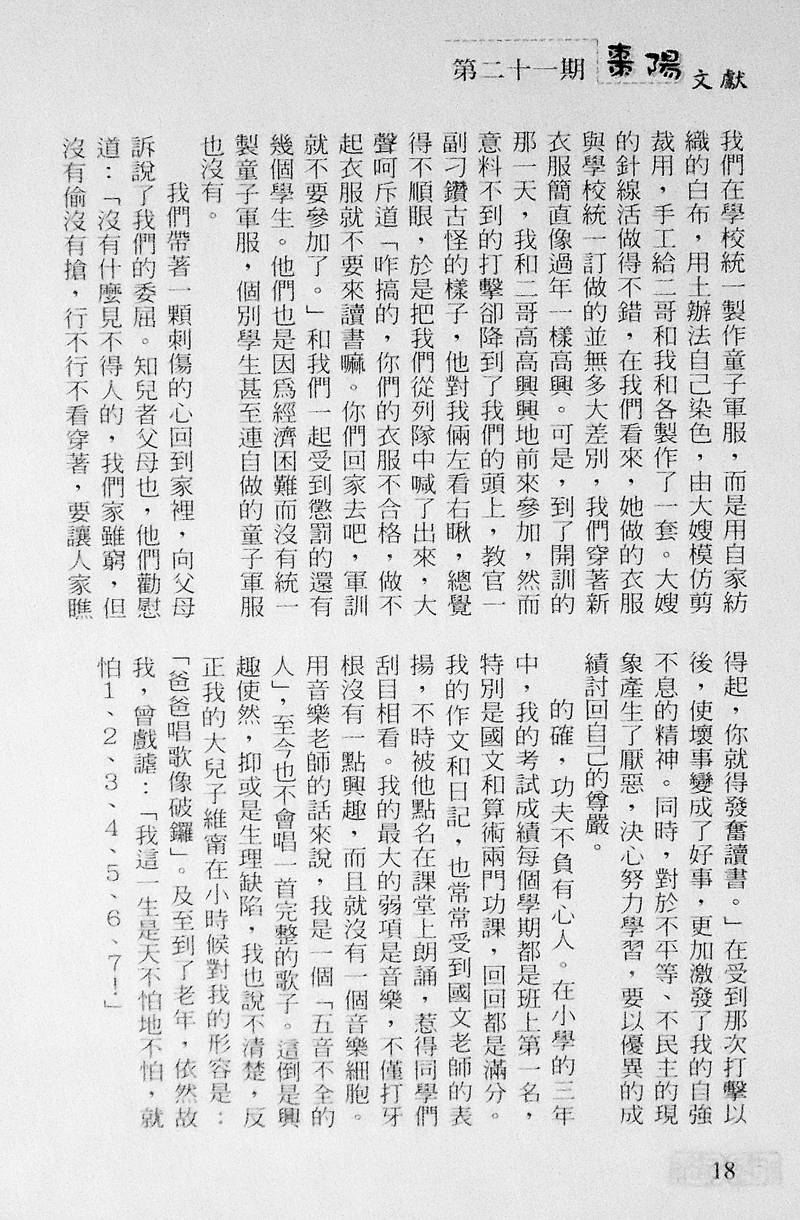 第二十一期 棗陽文獻
我們在學校統一製作童子軍服，而是用自家紡
織的白布，用土辦法自己染色，由大嫂模仿剪
裁用，手工給二哥和我和各製作了一套。大嫂
的針線活做得不錯，在我們看來，她做的衣服
與學校統一訂做的並無多大差別，我們穿著新
衣服簡直像過年一樣高興。可是，到了開訓的
那一天，我和二哥高高興興地前來參加，然而
意料不到的打擊卻降到了我們的頭上，教官一
副刁鑽古怪的樣子，他對我倆左看右瞅，總覺
得不順眼，於是把我們從列隊中喊了出來，大
聲呵斥道「咋搞的，你們的衣服不合格，做不
起衣服就不要來讀書嘛。你們回家去吧，軍訓
就不要參加了。」和我們一起受到懲罰的還有
幾個學生。他們也是因為經濟困難而沒有統一
製童子軍服，個別學生甚至連自做的童子軍服
也沒有。
我們帶著一顆刺傷的心回到家裡，向父母
訴說了我們的委屈。知兒者父母也，他們勸慰
道：「沒有什麼見不得人的，我們家雖窮，但
沒有偷沒有搶，行不行不看穿著，要讓人家瞧
得起，你就得發奮讀書。」在受到那次打擊以
後，使壞事變成了好事，更加激發了我的自強
不息的精神。同時，對於不平等、不民主的現
象產生了厭惡，決心努力學習，要以優異的成
績討回自己的尊嚴。
的確，功夫不負有心人。在小學的三年
中，我的考試成績每個學期都是班上第一名，
特別是國文和算術兩門功課，回回都是滿分。
我的作文和日記，也常常受到國文老師的表
揚，不時被他點名在課堂上朗誦，惹得同學們
刮目相看。我的最大的弱項是音樂，不僅打牙
根沒有一點興趣，而且就沒有一個音樂細胞。
用音樂老師的話來說，我是一個「五音不全的
人」，至今也不會唱一首完整的歌子。這倒是興
趣使然，抑或是生理缺陷，我也說不清楚，反
正我的大兒子維甯在小時候對我的形容是：
「爸爸唱歌像破鑼」。及至到了老年，依然故
我，曾戲謔：「我這一生是天不怕地不怕，就
怕1、2、3、4、5、6、7！」
18